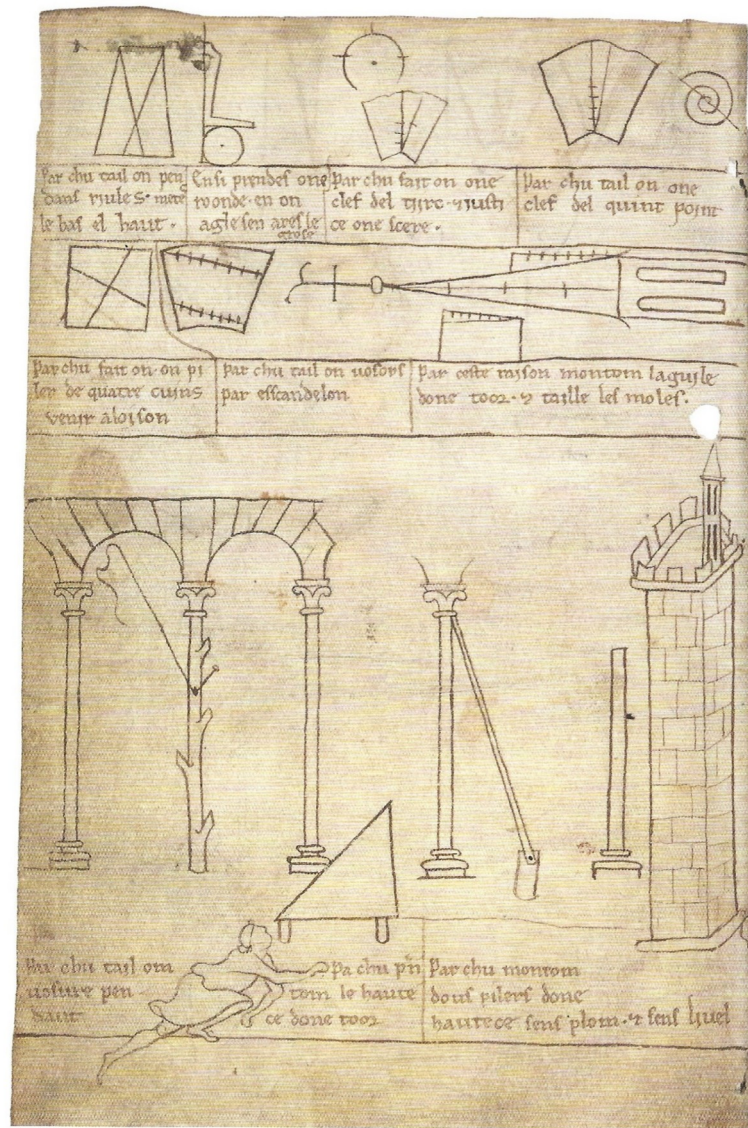 Par chu tail on pen
dans riules · mete
le bas el haut ·
Ensi prendes one
roonde · en on
agle sen ares le
grose
Par chu fait on one
clef del tirc · & iusti
ce one scere ·
Par chu tail on one
clef del quint point
Par chu fait on on pi
ler de quatre cuins
venir a loison
Par chu tail on vosors
par escandelon
Par ceste raison montom laguile
done toor · & taille les moles ·
Par chu tail om
vosure pen
dant
Pa chu prn
tom le haute
ce done toor
Par chu montom
dous pilers done
hautece sens plom · & sens livel